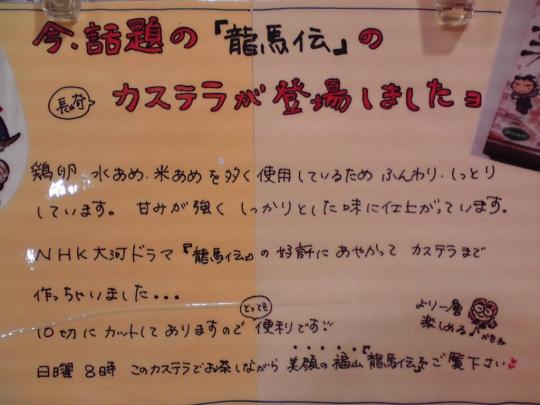 今、話題の『龍馬伝』の
長崎 カステラが登場しましたョ
鶏卵、水あめ、米あめを多く使用しているためふんわり、しっとり
しています。甘みが強くしっかりとした味に仕上がっています。
NHK大河ドラマ『龍馬伝』の好評にあやかってカステラまで
作っちゃいました・・・
とっても
10切にカットしてありますので便利です
より一層
楽しめる♪かもね
日曜8時 このカステラでお茶しながら美顔の福山『龍馬伝』をご覧下さい♥